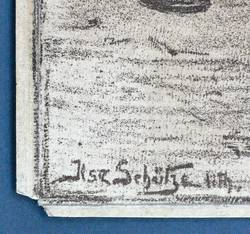 Ilse Schütze lith.